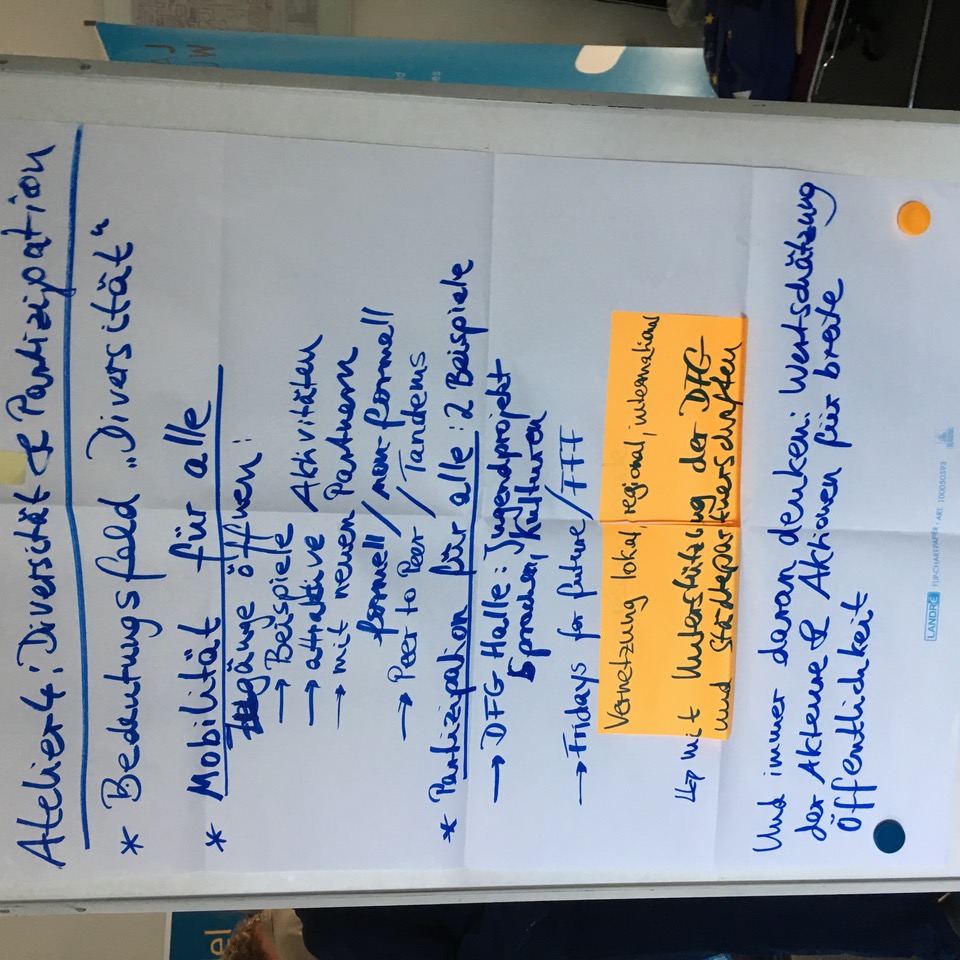 Atelier 4: Diversität & Partizipation
* Bedeutungsfeld „Diversität“
* Mobilität für alle
Zugänge öffnen:
→ Beispiele
→ attraktive Aktivitäten
→ mit neuen Partnern
formell / non-formell
→ Peer to Peer / Tandems
* Partizipation für alle: 2 Beispiele
→ DFG Halle: Jugendprojekt
Sprachen, Kulturen
→ Fridays for future / FFF
Vernetzung lokal, regional, international
mit Unterstützung der DFG
und Städtepartnerschaften
Und immer daran denken: Wertschätzung
der Akteure & Aktionen für breite
Öffentlichkeit
LANDRÉ FLIPCHARTPAPIER • ART. 100050593